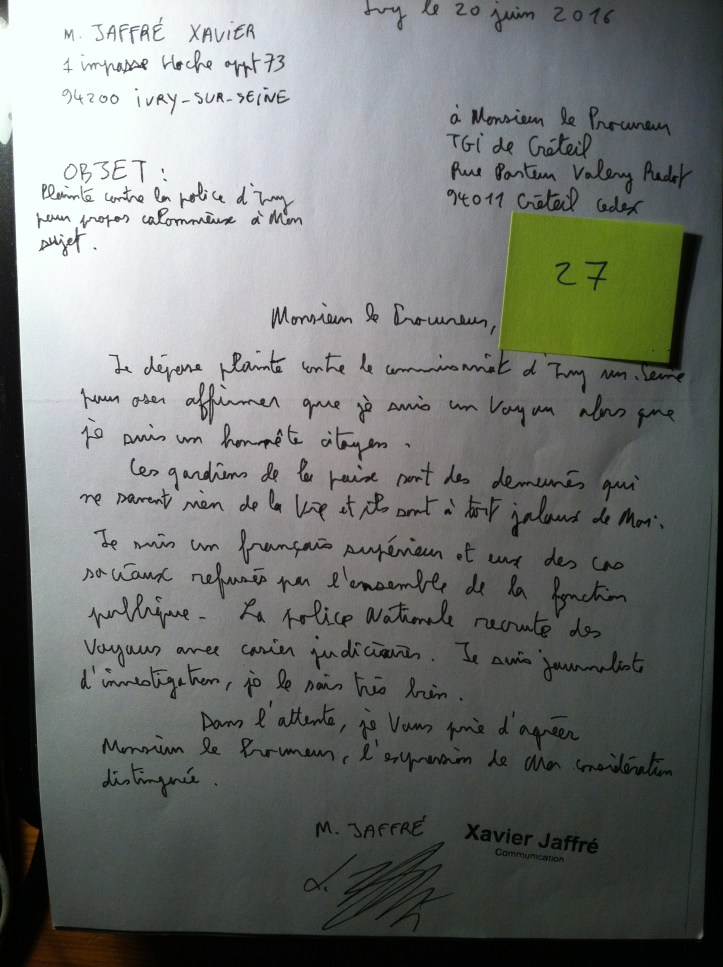 Ivry le 20 juin 2016
M. JAFFRÉ XAVIER
1 impasse Hoche appt 73
94200 IVRY-SUR-SEINE
à Monsieur le Procureur
TGI de Créteil
Rue Pasteur Valery Radot
94011 Créteil cedex
OBJET :
Plainte contre la police d'Ivry
pour propos calomnieux à Mon
sujet.
27
Monsieur le Procureur,
Je dépose plainte contre le commissariat d'Ivry sur-Seine
pour oser affirmer que je suis un Voyou alors que
je suis un honnête citoyen.
Ces gardiens de la paix sont des demeurés qui
ne savent rien de la Vie et ils sont à tort jaloux de Moi.
Je suis un français supérieur et eux des cas
sociaux refusés par l'ensemble de la fonction
publique. La police Nationale recrute des
Voyous avec casier judiciaires. Je suis journaliste
d'investigation, je le sais très bien.
Dans l'attente, je Vous prie d'agréer
Monsieur le Procureur, l'expression de Mon considération
distinguée.
M. JAFFRÉ
Xavier Jaffré
Communication